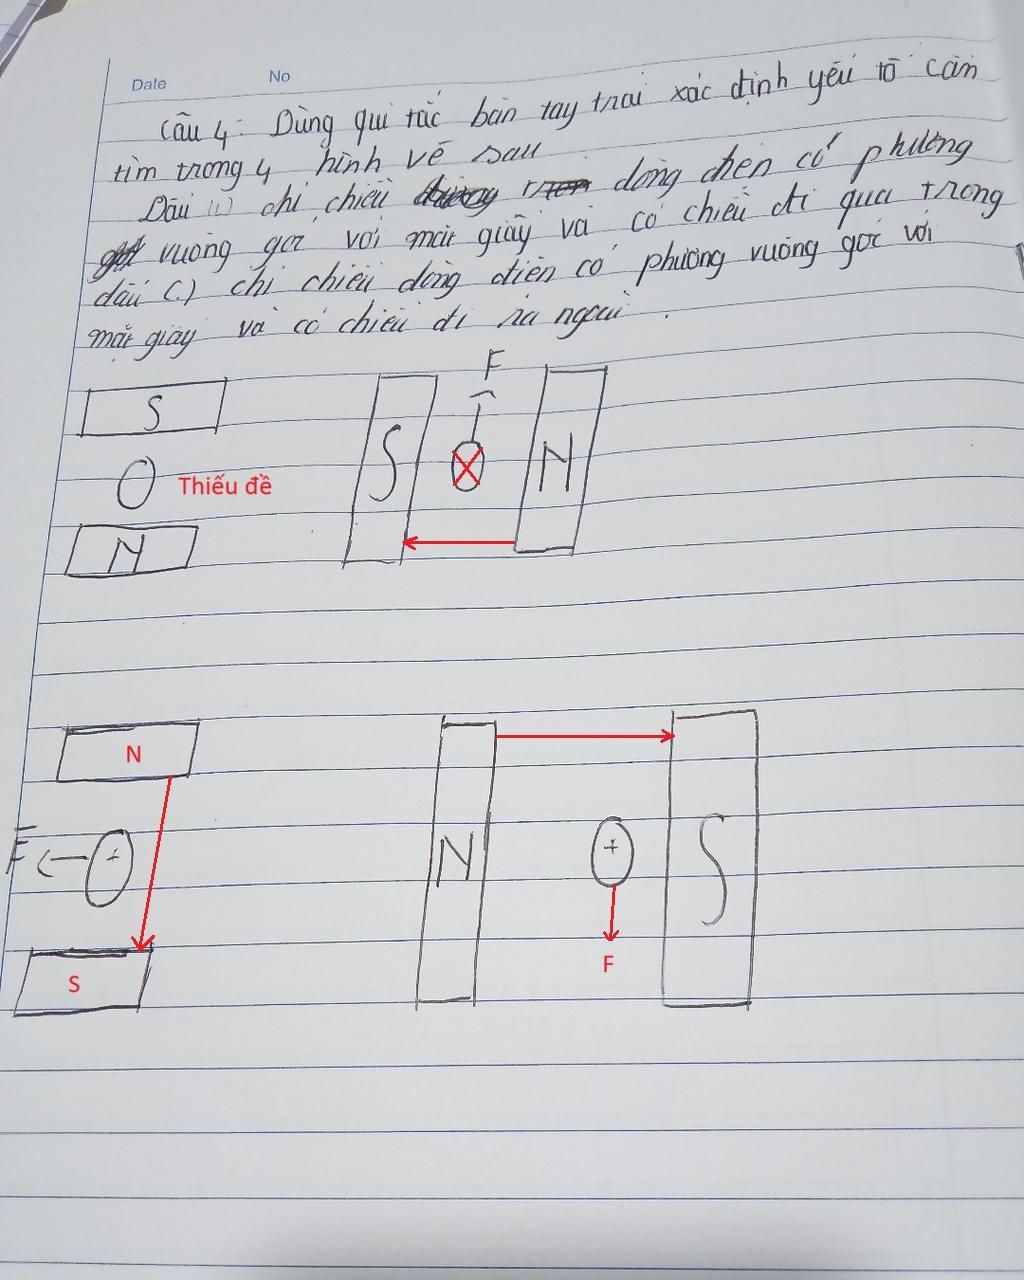 Date No
Câu 4: Dùng qui tắc bàn tay trái xác định yếu tố cần
tìm trong 4 hình vẽ sau
Dấu (+) chỉ chiều dòng điện có phương
vuông góc với mặt giấy và có chiều đi qua trong
dấu (.) chỉ chiều dòng điện có phương vuông góc với
mặt giấy và có chiều đi ra ngoài .
F
S
S
N
Thiếu đề
N
N
F
+
N
+
S
S
F